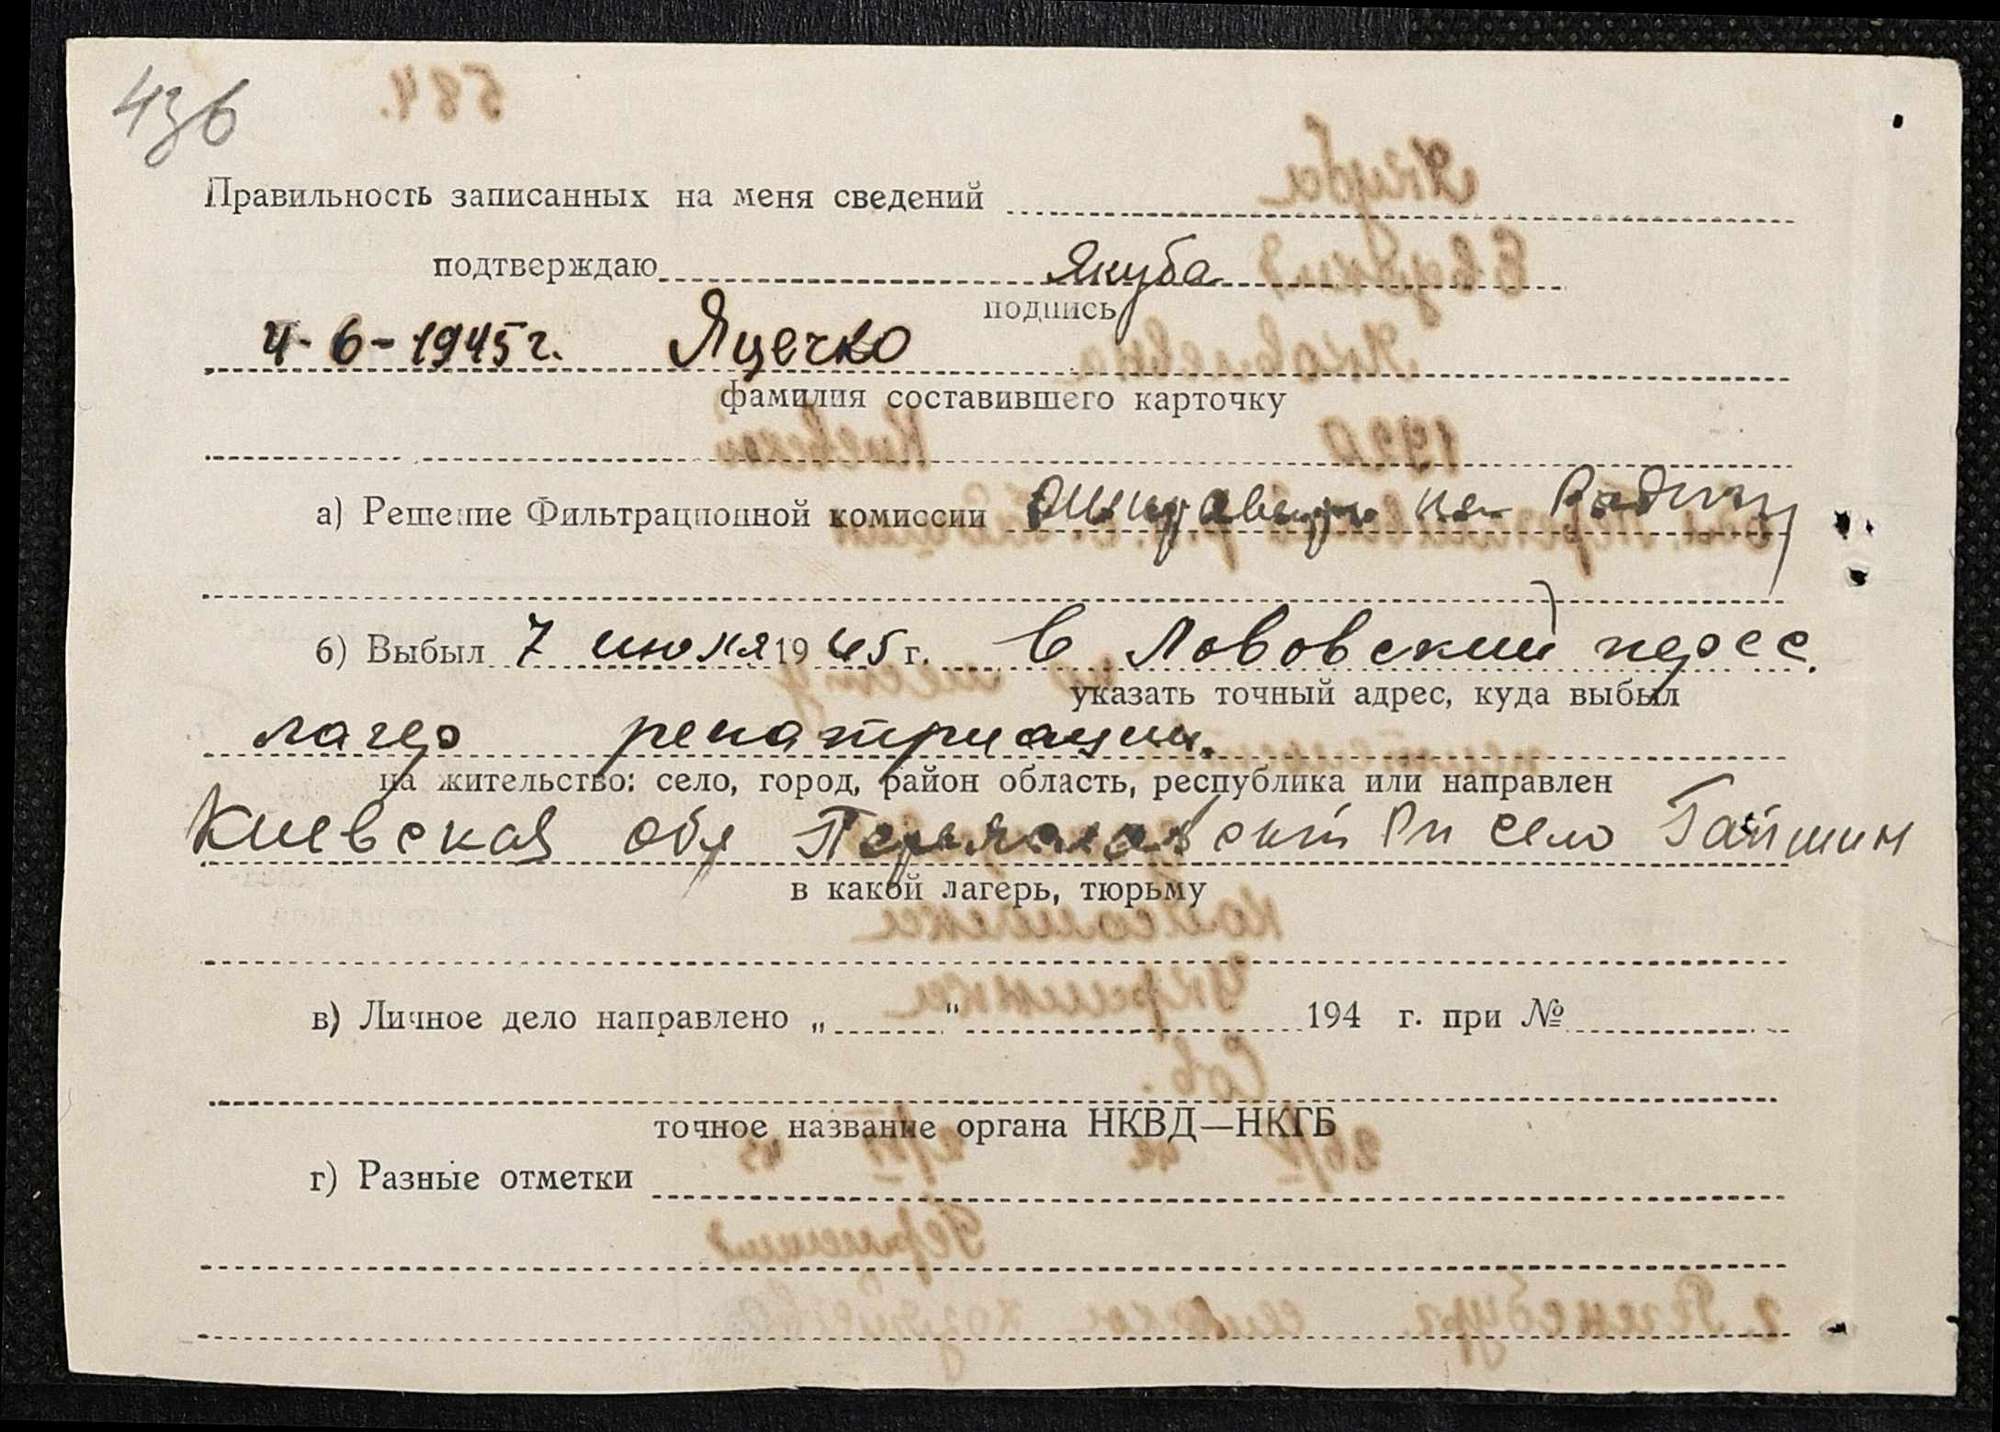 436
Правильность записанных на меня сведений
подтверждаю Якуба
подпись
4-6-1945 г. Яцечко
фамилия составившего карточку
а) Решение Фильтрационной комиссии на Родину
б) Выбыл 7 июля 1945 г. в Лововский перес.
указать точный адрес, куда выбыл
лагер репатриации.
на жительство: село, город, район область, республика или направлен
Киевская обл Переяславский Рн село Гайшин
в какой лагерь, тюрьму
в) Личное дело направлено „ " 194 г. при №
точное название органа НКВД—НКГБ
г) Разные отметки